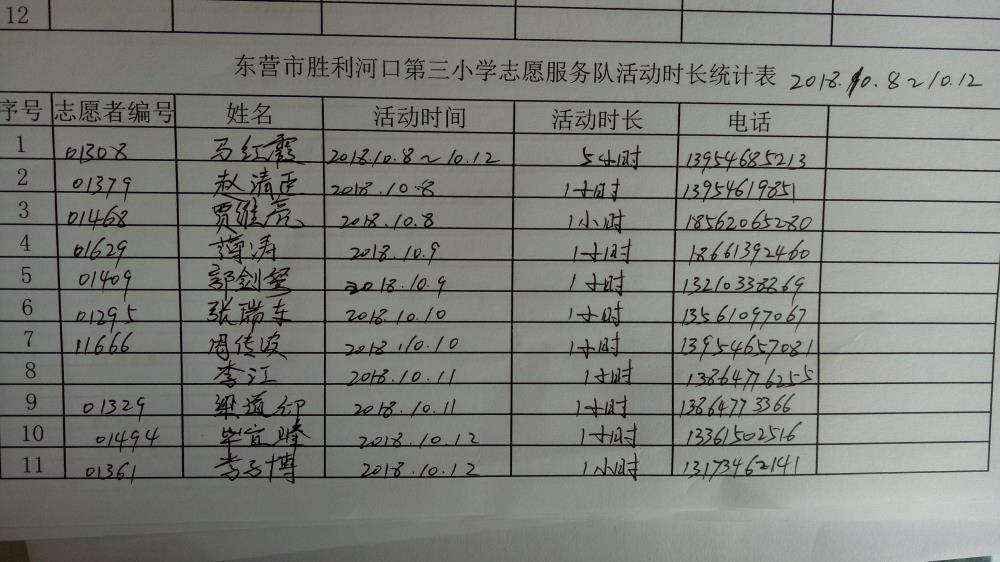 12
东营市胜利河口第三小学志愿服务队活动时长统计表 2018.10.8~10.12
序号 志愿者编号 姓名 活动时间 活动时长 电话
1 01308 马红霞 2018.10.8~10.12 5小时 13954685213
2 01379 赵清 2018.10.8 1小时 13954619851
3 01468 贾维亮 2018.10.8 1小时 18562065280
4 01629 薄涛 2018.10.9 1小时 18661392460
5 01409 郭剑 2018.10.9 1小时 13210338869
6 01295 张瑞东 2018.10.10 1小时 13561097067
7 11666 周传波 2018.10.10 1小时 13954657081
8 李江 2018.10.11 1小时 13864776255
9 01329 梁道 2018.10.11 1小时 13864773366
10 01494 毕宜峰 2018.10.12 1小时 13361502516
11 01361 李博 2018.10.12 1小时 13173462141